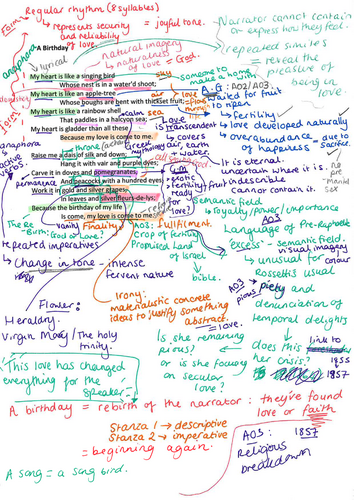 Regular rhythm (8 syllables)
Form
represents security = joyful tone.
and reliability
of love.
Narrator cannot contain
or express how they feel.
A Birthday
anaphora
lyrical
natural imagery
naturalness
of love = God?
repeated similes
= reveal the
pleasure of
being in
love.
My heart is like a singing bird
Whose nest is in a water'd shoot;
My heart is like an apple-tree
Whose boughs are bent with thickset fruit;
My heart is like a rainbow shell
That paddles in a halcyon sea;
My heart is gladder than all these
Because my love is come to me.
Raise me a dais of silk and down;
Hang it with vair and purple dyes;
Carve it in doves and pomegranates,
And peacocks with a hundred eyes;
Work it in gold and silver grapes,
In leaves and silver fleurs-de-lys;
Because the birthday of my life
Is come, my love is come to me.
sky
air
calm sea
someone to
make a home with
A.G: AO2/AO3
waited for fruit
to ripen
fertility
love developed naturally
overabundance = due to
of happiness
Love
is transcendent
covers
earth
water
It is eternal
uncertain where it is.
indescribable
cannot contain it.
anaphora
permanence
vanity
Finality
exotic
fertility
ready
for
love?
Semantic field
royalty/power/importance
AO3
Language of Pre-Raph
excess - semantic field
visual imagery
unusual for colour
Rossetti's usual
piety and
denunciation of
temporal delights
AO3
pious
AO3: fulfillment
crop of fertility
Promised Land
of Israel
bible
The Re-
Birth:
God or love?
repeated imperatives
Change in tone - intense
fervent nature
Flower:
Heraldry.
Virgin Mary/The holy
trinity.
Irony:
materialistic concrete
ideas to justify something
abstract.
= love.
Is she remaining
pious?
or is she focused
on secular
love?
does this link to
her crisis?
1855
1857
This love has changed
everything for the
speaker
A birthday = rebirth of the narrator: they've found
love or faith
Stanza 1 → descriptive
Stanza 2 → imperative
= beginning again.
AO3: 1857
religious
breakdown
A song = a song bird.